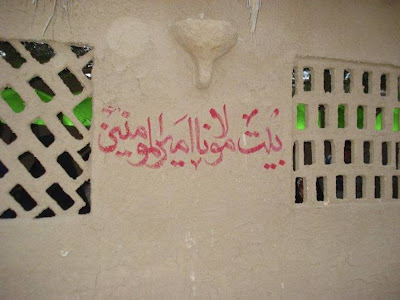 بيت مولانا امير المومنين